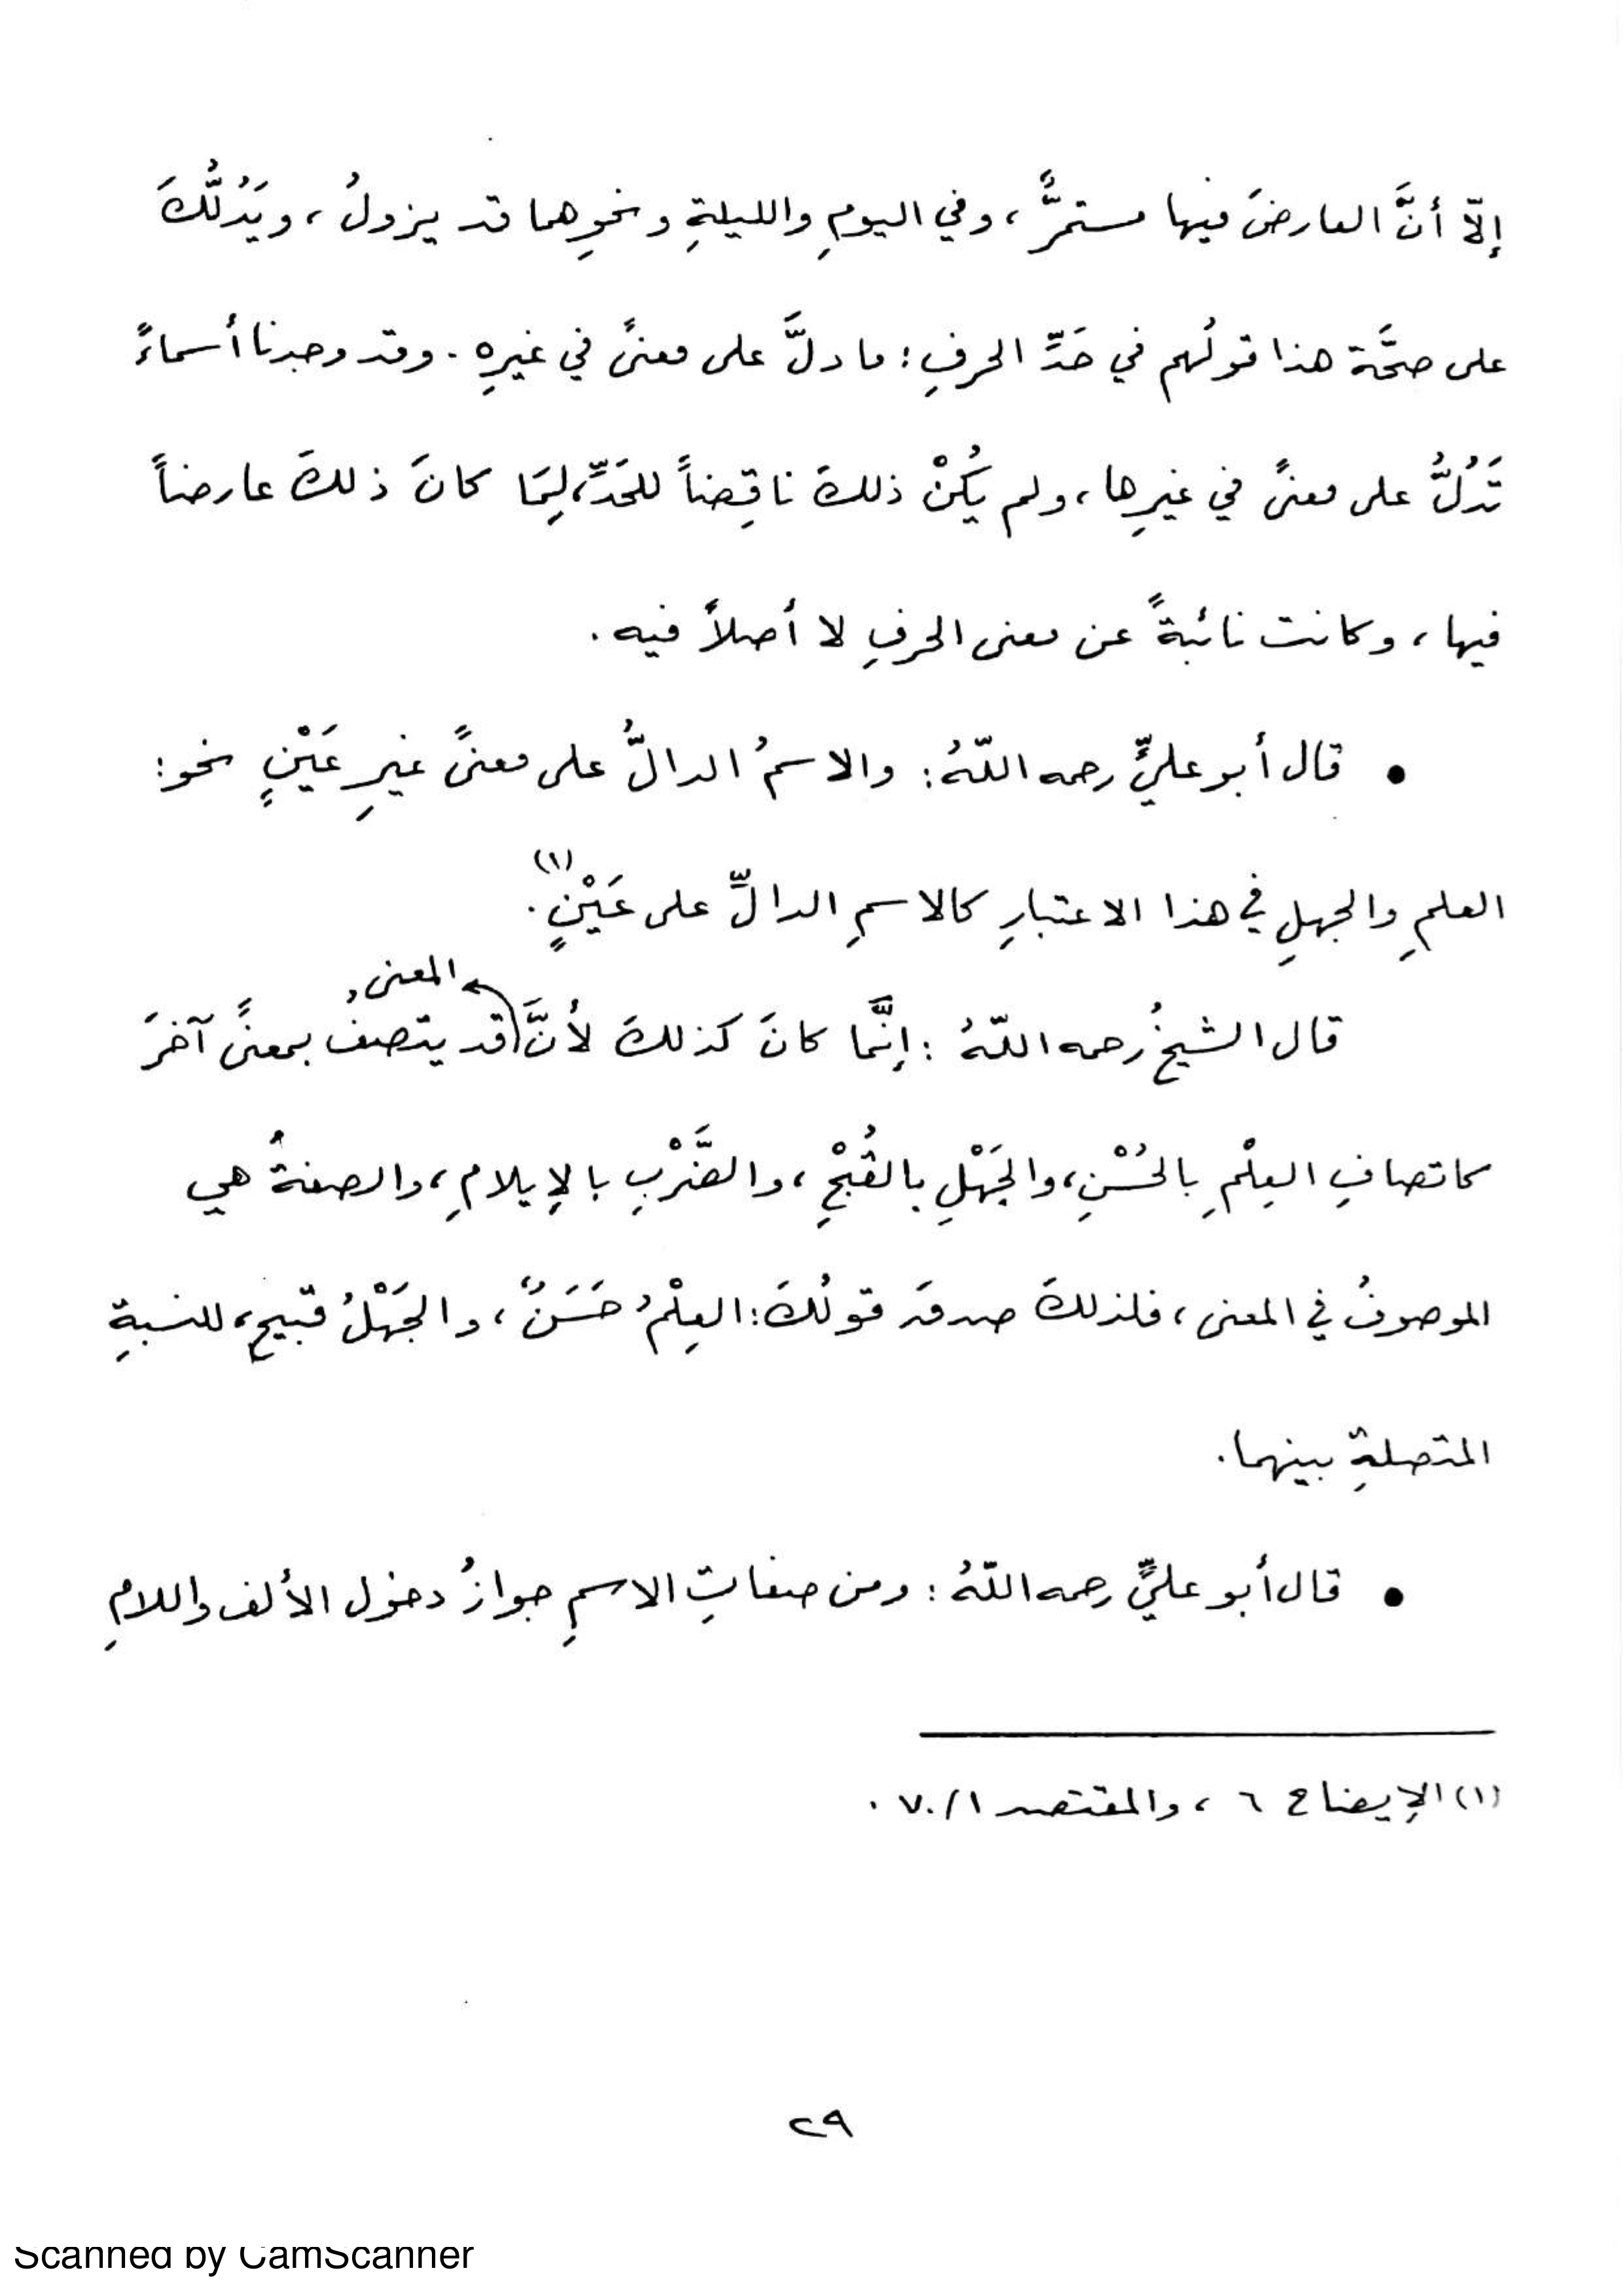 إلّا أنَّ العارضَ فيها مستمرٌّ، وفي اليومِ والليلةِ ونحوِهما قد يزولُ، ويَدُلُّكَ
على صحَّة هذا قولُهم في حَدِّ الحرفِ: ما دلَّ على معنىً في غيرِهِ. وقد وجدنا أسماءً
تَدُلُّ على معنىً في غيرِها، ولم يَكُنْ ذلكَ ناقِضاً للحَدِّ، لِمَا كانَ ذلكَ عارضاً
فيها، وكانت نائبةً عن معنى الحرفِ لا أصلاً فيه.
• قال أبو عليٍّ رحمه اللّهُ: والاسمُ الدالُّ على معنىً غيرِ عَيْنٍ نحو:
العلمِ والجهلِ في هذا الاعتبارِ كالاسمِ الدالِّ على عَيْنٍ(١).
قال الشيخُ رحمه اللّهُ: إنَّما كانَ كذلكَ لأنَّ المعنى قد يتصفُ بمعنىً آخرَ
كاتصافِ العِلْمِ بالحُسْنِ، والجَهْلِ بالقُبْحِ، والضَّرْبِ بالإيلامِ، والصفةُ هي
الموصوفُ في المعنى، فلذلكَ صدقَ قولُكَ: العِلْمُ حَسَنٌ، والجَهْلُ قبيحٌ، للنسبةِ
المتصلةِ بينهما.
• قال أبو عليٍّ رحمه اللّهُ: ومن صفاتِ الاسمِ جوازُ دخول الألف واللامِ
(١) الإيضاح ٦، والمقتصد ٧٠/١.
٢٩
Scanned by CamScanner